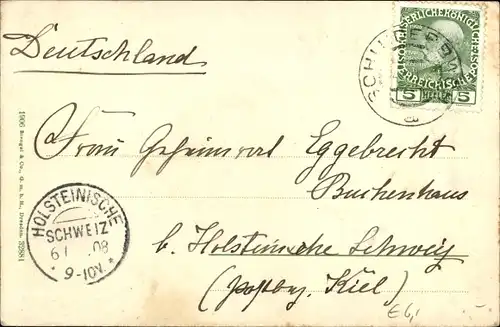 Deutschland
KAISERLICHE KÖNIGLICHE
ÖSTERREICHISCHE
5 HELLER 5
SCHL
Frau Geheimrat Eggebrecht
Buchenhaus
b. Holsteinische Schweiz
(postbez. Kiel)
HOLSTEINISCHE
SCHWEIZ
6 08
* 9-10V. *
1906 Stengel & Co., G. m. b. H., Dresden. 32881